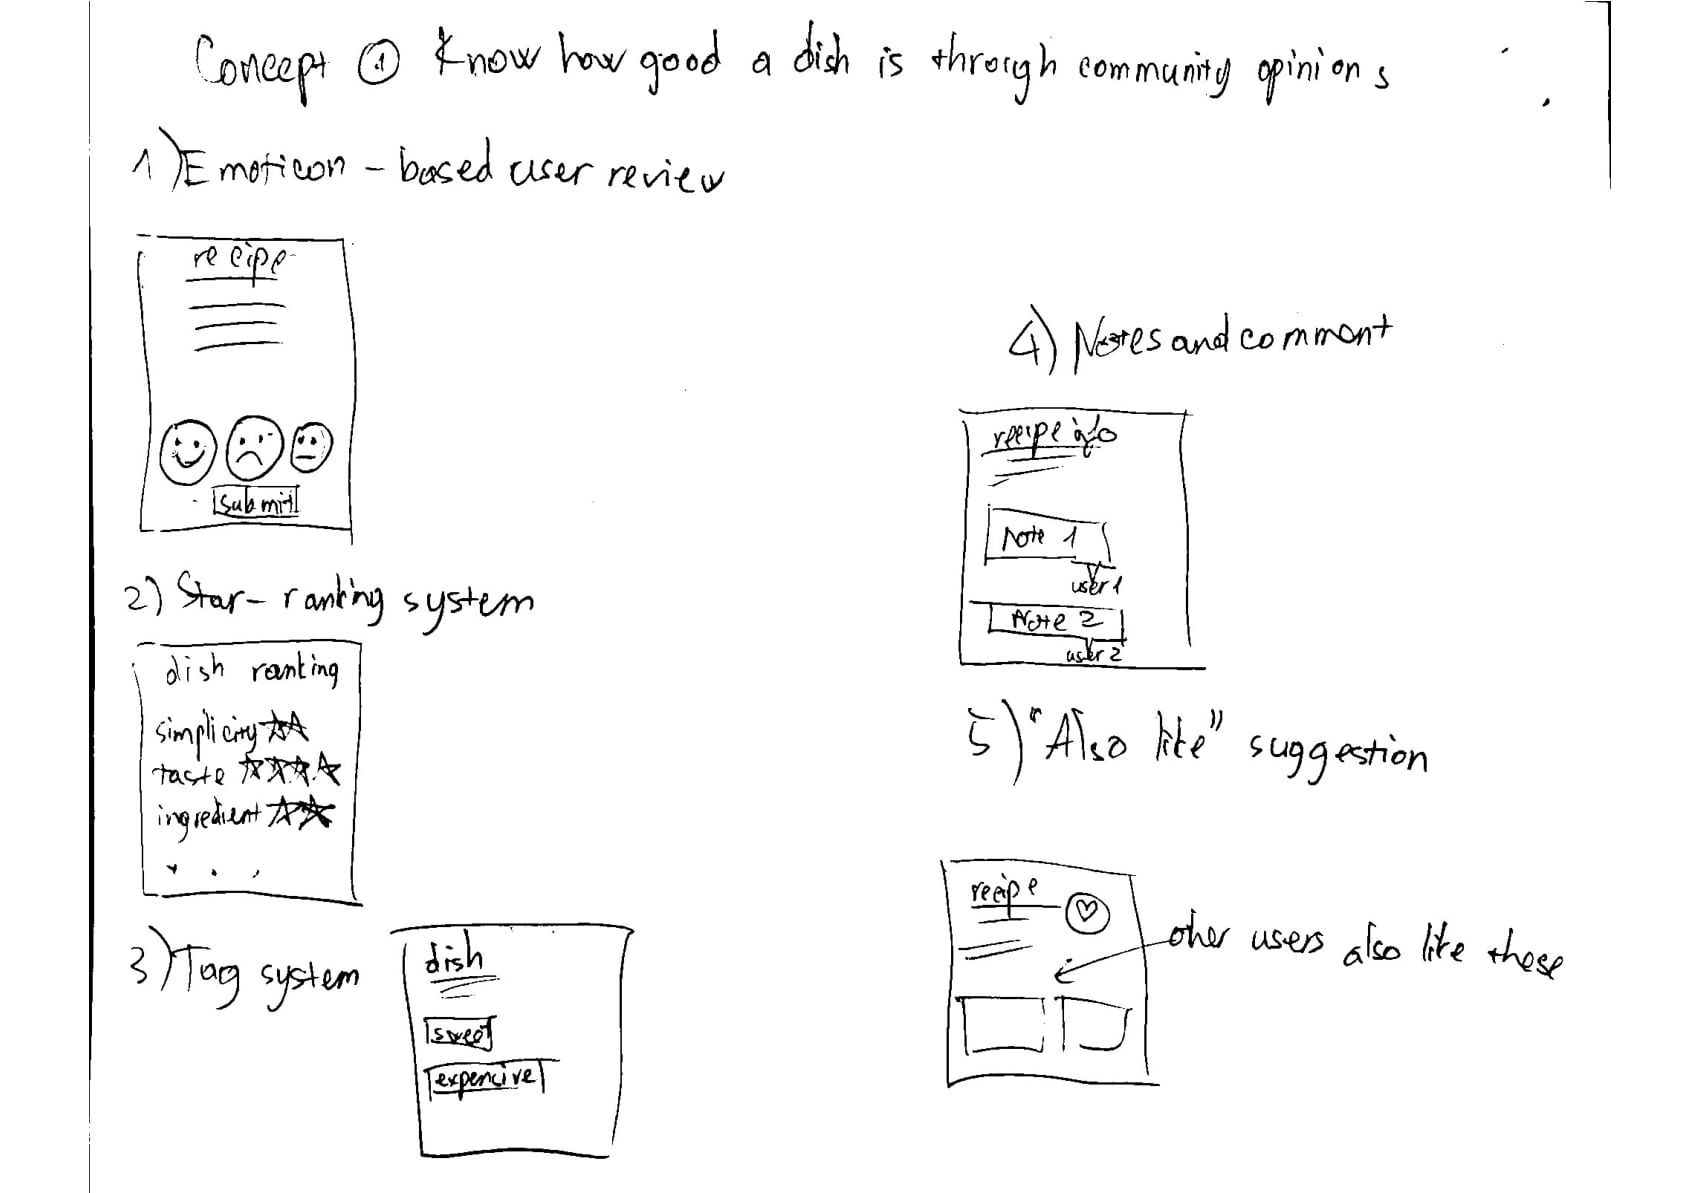 Concept ① Know how good a dish is through community opinions
1) Emoticon - based user review
recipe
submit
2) Star- ranking system
dish ranking
simplicity ★★
taste ★★★★
ingredient ★★
. . .
3) Tag system
dish
sweet
expencive
4) Notes and comment
recipe info
Note 1
user 1
Note 2
user 2
5) "Also like" suggestion
recipe
other users also like these